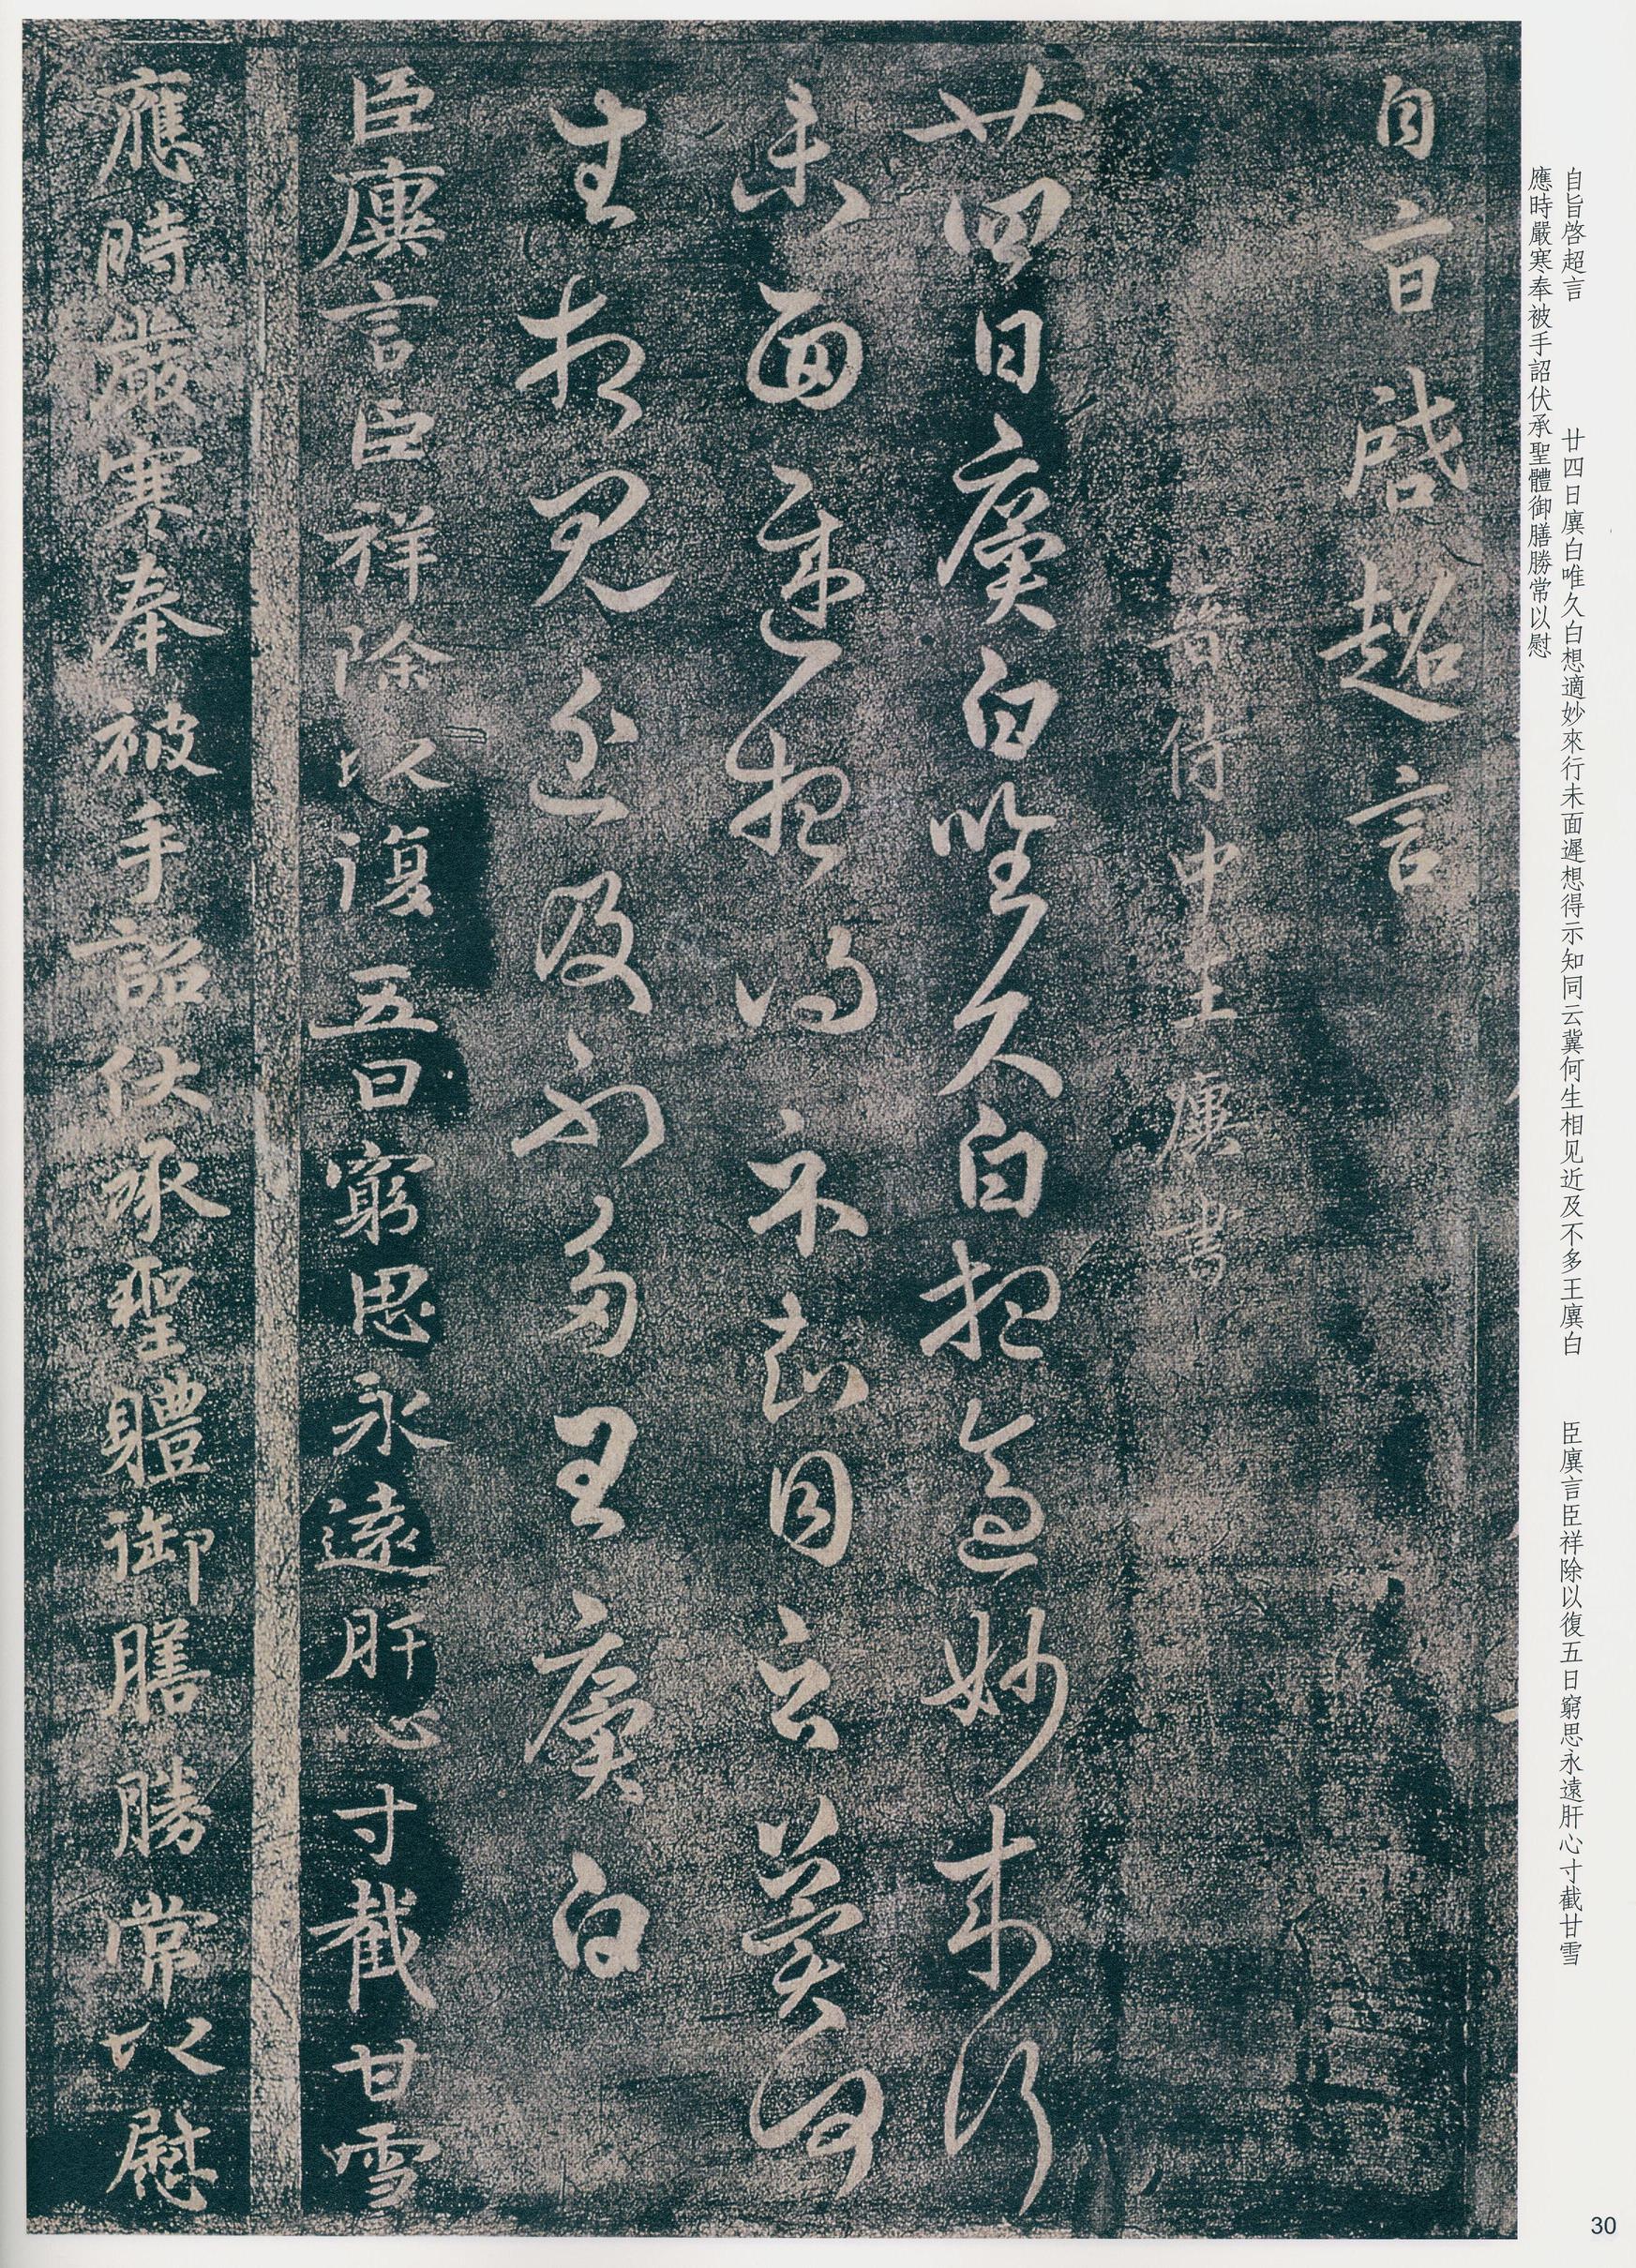 自旨啓超言　廿四日廙白唯久白想適妙來行未面遲想得示知同云冀何生相见近及不多王廙白　臣廙言臣祥除以復五日窮思永遠肝心寸截甘雪
應時嚴寒奉被手詔伏承聖體御膳勝常以慰
自旨啓超言
晉侍中王廙書
廿四日廙白唯久白想適妙來行
未面遲想得示知同云冀何
生相見近及不多王廙白
臣廙言臣祥除以復五日窮思永遠肝心寸截甘雪
應時嚴寒奉被手詔伏承聖體御膳勝常以慰
30